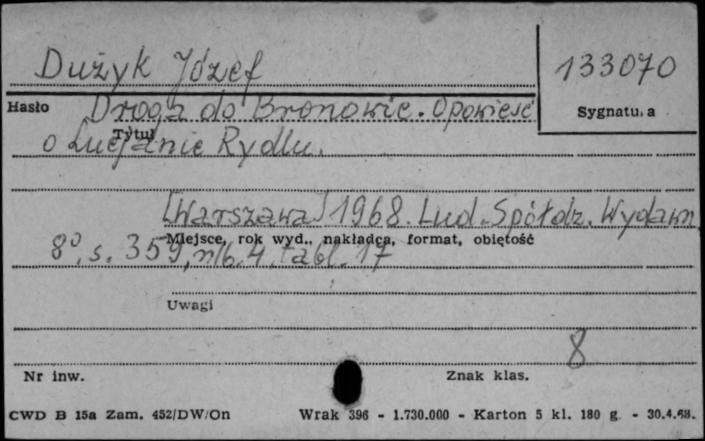 Dużyk Józef
133070
Hasło
Droga do Bronowic. Opowieść
Sygnatu.a
Tytuł
o Lucjanie Rydlu.
[Warszawa] 1968. Lud. Spółdz. Wydawn.
Miejsce, rok wyd., nakładca, format, objętość
8°, s. 359, nlb. 4, tabl. 17
Uwagi
8
Nr inw.
Znak klas.
CWD B 15a Zam. 452/DW/On Wrak 396 - 1.730.000 - Karton 5 kl. 180 g. - 30.4.68.